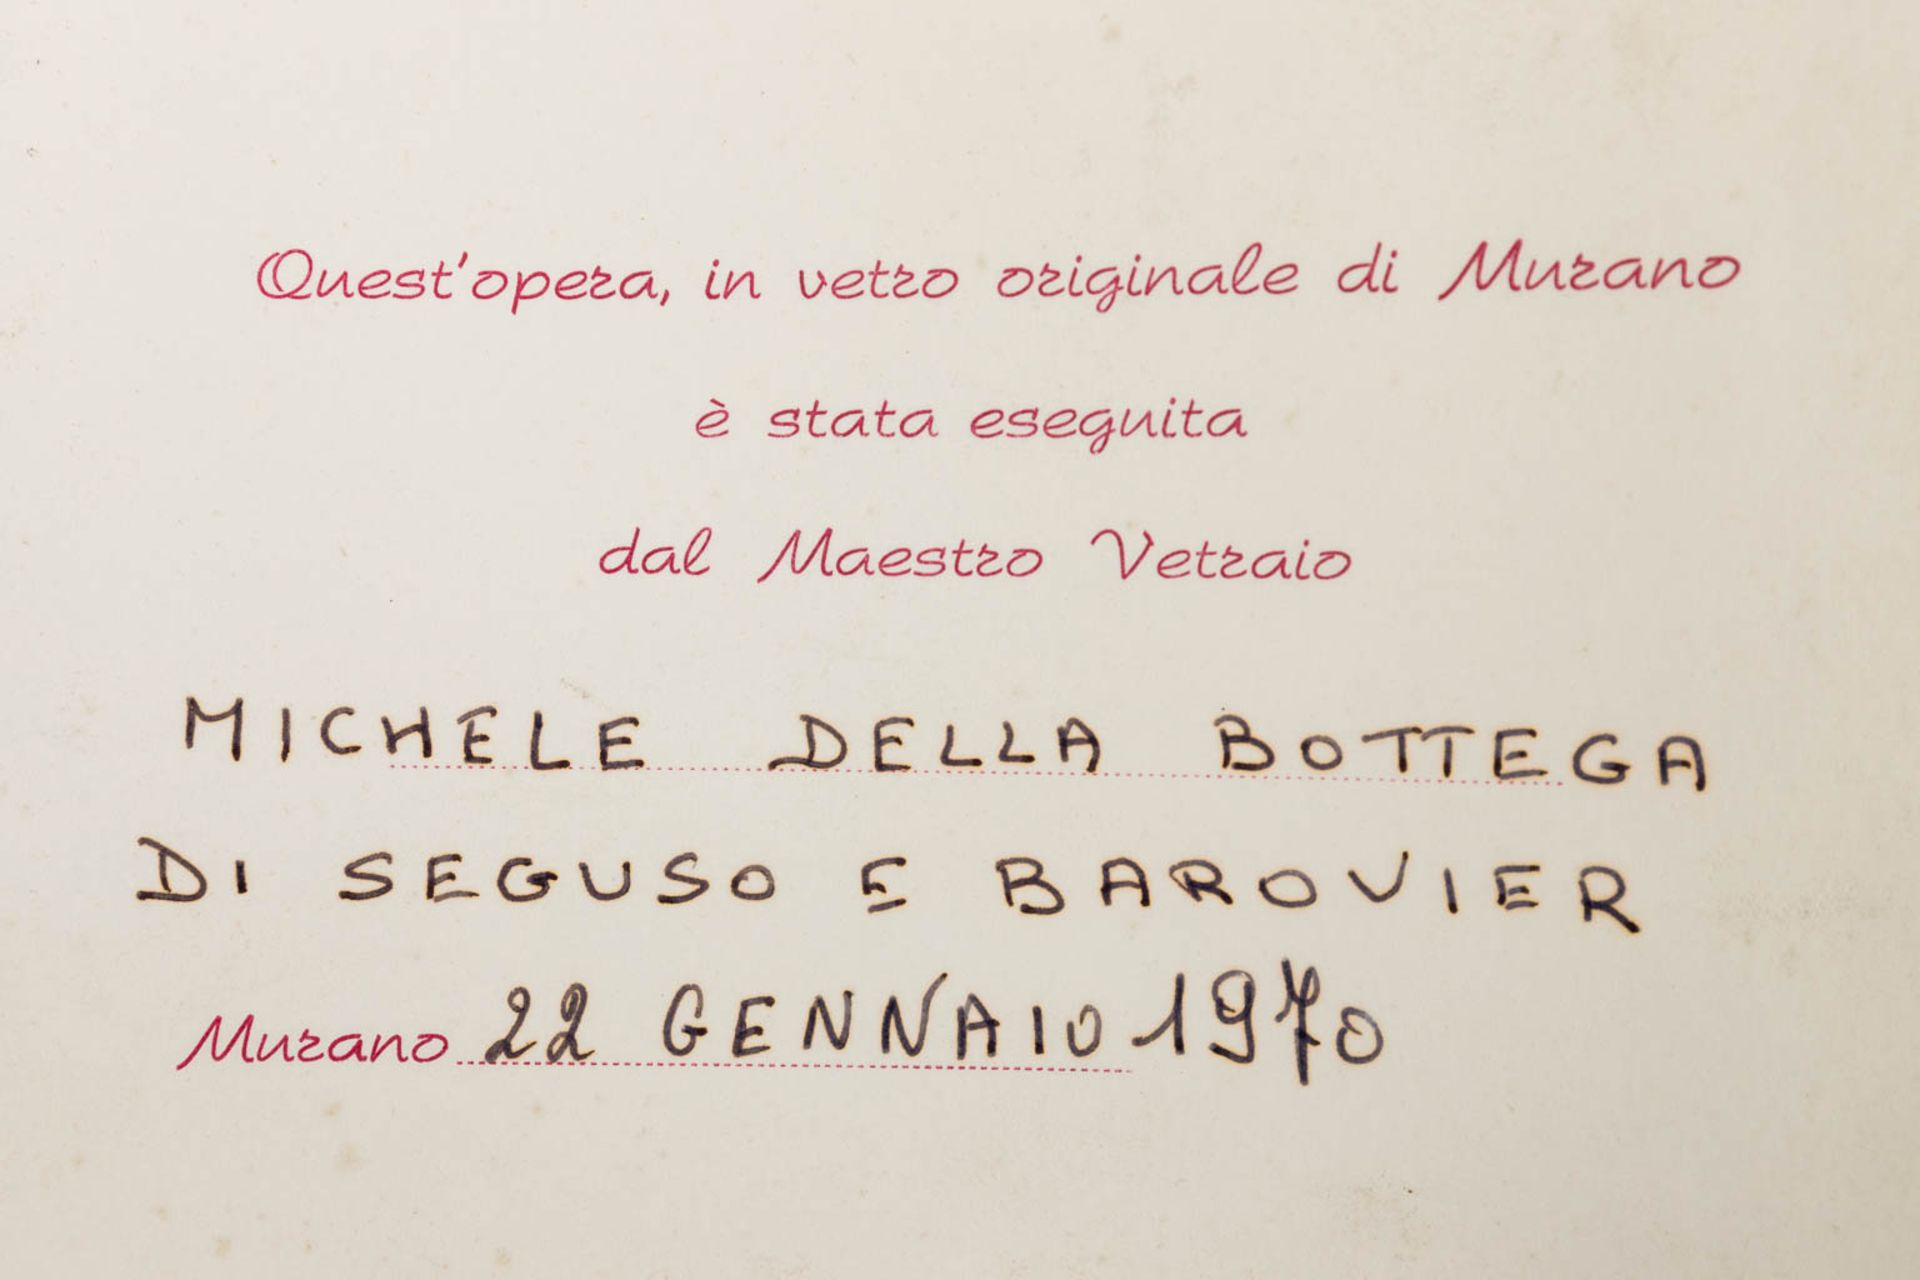 Quest'opera, in vetro originale di Murano
è stata eseguita
dal Maestro Vetraio
MICHELE DELLA BOTTEGA
DI SEGUSO E BAROVIER
Murano 22 GENNAIO 1970